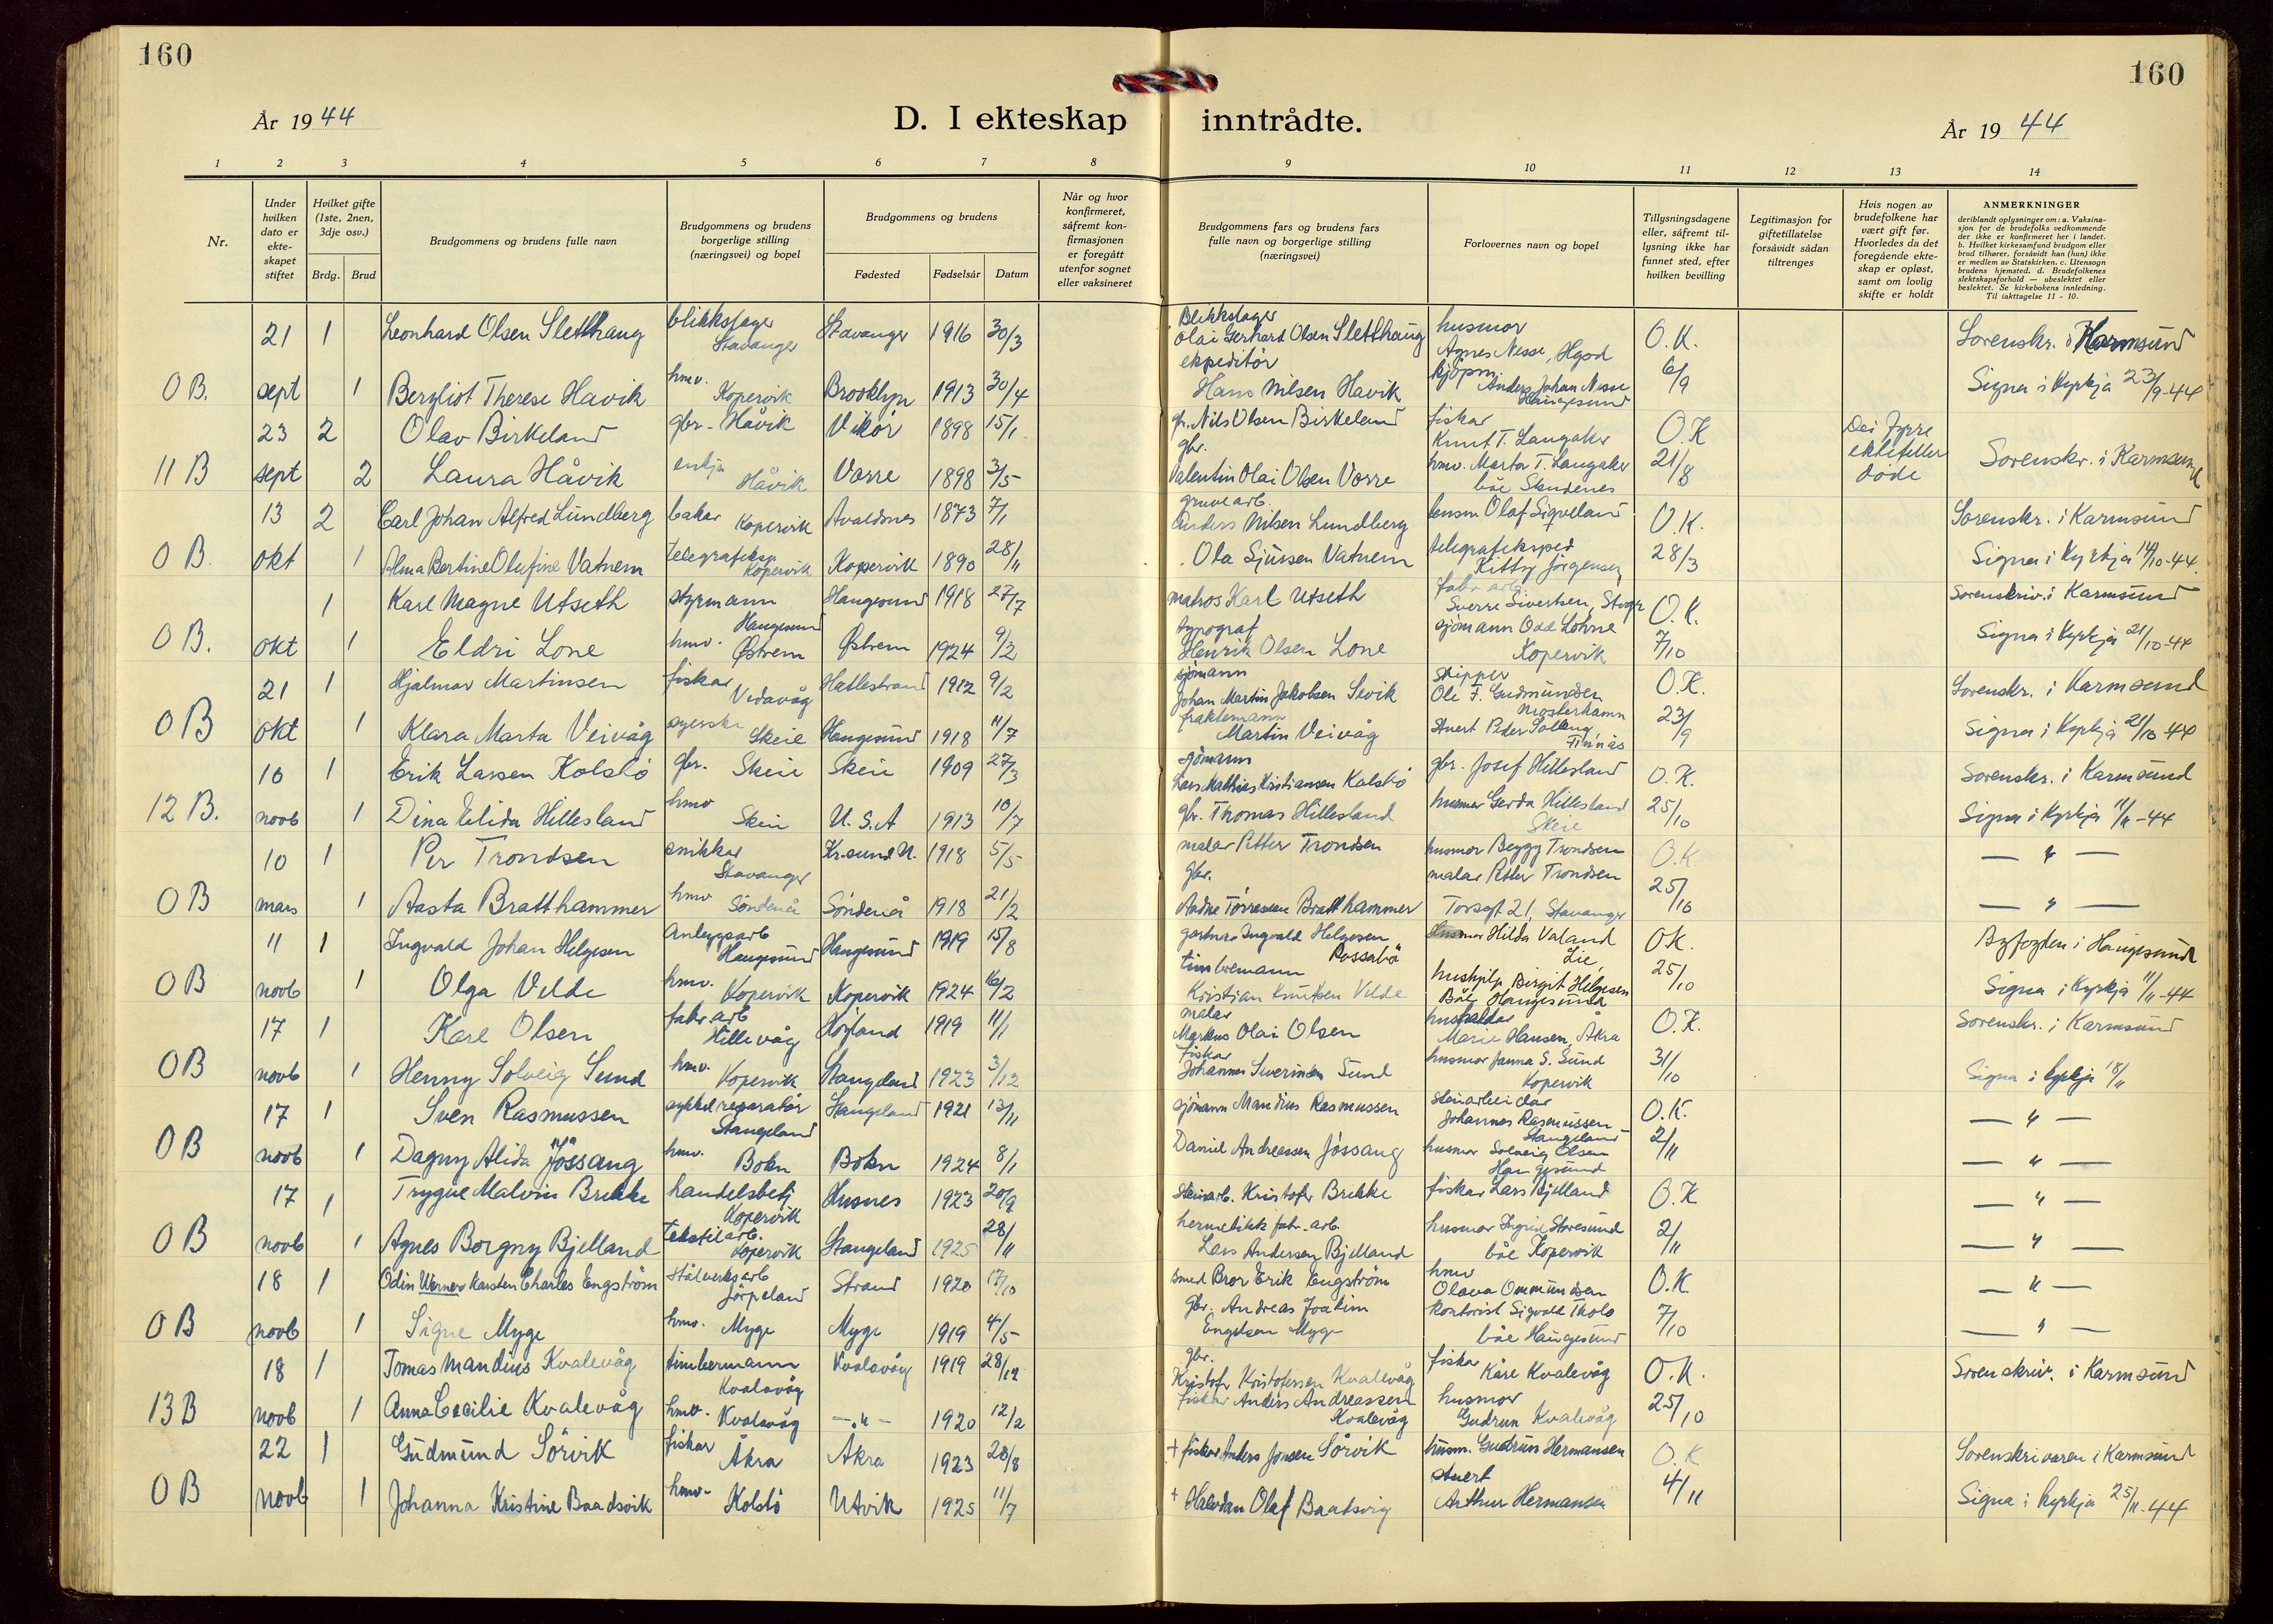 160
160
År 1944
D. I ekteskap inntrådte.
År 1944
1 2 3 4 5 6 7 8 9 10 11 12 13 14
Nr.
Under hvilken dato er ekteskapet stiftet
Hvilket gifte (1ste, 2nen, 3dje osv.)
Brdg. Brud
Brudgommens og brudens fulle navn
Brudgommens og brudens borgerlige stilling (næringsvei) og bopel
Brudgommens og brudens
Fødested Fødselsår Datum
Når og hvor konfirmeret, såfremt konfirmasjonen er foregått utenfor sognet eller vaksineret
Brudgommens fars og brudens fars fulle navn og borgerlige stilling (næringsvei)
Forlovernes navn og bopel
Tillysningsdagene eller, såfremt tillysning ikke har funnet sted, efter hvilken bevilling
Legitimasjon for giftetillatelse forsåvidt sådan tiltrenges
Hvis nogen av brudefolkene har vært gift før. Hvorledes da det foregående ekteskap er opløst, samt om lovlig skifte er holdt
ANMERKNINGER
deriblandt oplysninger om: a. Vaksinasjon for de brudefolks vedkommende der ikke er konfirmeret her i landet. b. Hvilket kirkesamfund brudgom eller brud tilhører, forsåvidt han (hun) ikke er medlem av Statskirken. c. Utensogn brudens hjemsted. d. Brudefolkenes slektskapsforhold — ubeslektet eller beslektet. Se kirkebokens innledning. Til iakttagelse 11 - 10.
21 1 Leonhard Olsen Sletthaug blikkslager Stavanger Stavanger 1916 30/3 Blikkslager Olai Gerhard Olsen Sletthaug husmor Agnes Nesse, Hgsd O.K. Sorenskr. i Karmsund
O B. sept 1 Bergliot Therese Havik hmv. Kopervik Brooklyn 1913 30/4 ekspeditör Hans Nilsen Havik kjöpm. Anders Johan Nesse Haugesund 6/9 Signa i kyrkja 23/9-44
23 2 Olav Birkeland gbr. Håvik Vikör 1898 15/1 gbr. Nils Olsen Birkeland fiskar Knut T. Langaker O.K Dei fyrre ektefeller døde
11 B sept 2 Laura Håvik enkja Håvik Vorre 1898 3/5 gbr. Valentin Olai Olsen Vorre hmv. Marta T. Langaker båe Skudenes 21/8 Sorenskr. i Karmsund
13 2 Carl Johan Alfred Lundberg bakar Kopervik Avaldsnes 1873 7/1 gruvearb. Anders Nilsen Lundberg Olaf Sigveland O.K. Sorenskr. i Karmsund
O B. okt 1 Alma Bertine Olufine Vatnem Kopervik Kopervik 1890 28/11 Ola Sjursen Vatnem telegrafeksped Kitty Jörgensen 28/3 Signa i kyrkja 14/10-44.
1 Karl Magne Utseth styrmann Haugesund Haugesund 1918 27/7 matros Karl Utseth fabr arb. Sverre Sivertsen, Stvgr O.K. Sorenskriv. i Karmsund
O B. okt 1 Eldri Lone hmv. Østrem Østrem 1924 9/2 typograf Henrik Olsen Lone sjömann Odd Lohne Kopervik 7/10 Signa i kyrkja 21/10-44
21 1 Hjalmar Martinsen fiskar Vedavåg Hattestrand 1912 9/2 sjömann Johan Martin Jakobsen Sevik skipper Ole F. Gudmundsen Mosterhamn O.K. Sorenskr. i Karmsund
O B okt 1 Klara Marta Veivåg syerske Skeie Haugesund 1918 11/7 fraktemann Martin Veivåg Stuert Peder Finnås 23/9 Signa i kyrkja 21/10-44
10 1 Erik Lassen Kolstö gbr. Skeie Skeie 1909 27/3 sjömann Lars Mathias Kristiansen Kolstö gbr. Josef Hillesland O.K. Sorenskr. i Karmsund
12 B. novb 1 Dina Elida Hillesland hmv Skeie U.S.A 1913 10/7 gbr. Thomas Hillesland husmor Gerda Hillesland Skeie 25/10 Signa i kyrkja 11/11-44
10 1 Per Trondsen snikkar Stavanger Kr.sund N. 1918 5/5 malar Petter Trondsen husmor Beggy Trondsen O.K. — " —
O B mars 1 Aasta Bratthammer hmv Söndenå Söndenå 1918 21/2 gbr. Aadne Törresen Bratthammer malar Petter Trondsen Torsgt 21, Stavanger 25/10 — " —
11 1 Ingvald Johan Helgesen Anleggsarb Haugesund Haugesund 1919 15/8 gartner Ingvald Helgesen Rossabö Husmor Hilda Valand Lie, O.K. Byfogden i Haugesund
O B novb 1 Olga Velde hmv. Kopervik Kopervik 1924 16/2 timbremann Kristian Knutsen Velde hushjelp Birgit Helgesen Båe Haugesund 25/10 Signa i kyrkja 11/11-44
17 1 Kare Olsen fabr arb Hillevåg Högland 1919 11/1 malar Markus Olai Olsen Marie Hansen, Åkra O.K. Sorenskr. i Karmsund
O B novb 1 Henny Solveig Sund hmv. Kopervik Stangeland 1923 3/12 fiskar Johannes Severinsen Sund husmor Janna S. Sund Kopervik 31/10 Signa i kyrkja 18/11
17 1 Sven Rasmussen sykkelreparatör Stangeland Stangeland 1921 13/11 sjömann Mandius Rasmussen steinarbeidar Johannes Rasmussen Stangeland O.K. — " —
O B novb 1 Dagny Alida Jössang hmv. Bokn Bokn 1924 8/1 Daniel Andreassen Jössang husmor Solveig Olsen Haugesund 2/11 — " —
17 1 Trygve Malvin Brekke handelsbetj Kopervik Husnes 1923 20/9 Steinarb. Kristofer Brekke fiskar Lars Bjelland O.K — " —
O B novb 1 Agnes Borgny Bjelland Tekstilarb. Kopervik Stangeland 1925 28/11 hermetikk fabr. arb. Lars Andersen Bjelland husmor Ingrid Storesund båe Kopervik 2/11 — " —
18 1 Odin Werner Karsten Charles Engström Stålverksarb Jörpeland Strand 1920 17/10 smed Bror Erik Engström hmv Olava Ommundsen O.K. — " —
O B novb 1 Signe Myge hmv. Myge Myge 1919 4/5 gbr. Andreas Joakim Engelsen Myge kontorist Sigvald Tholo båe Haugesund 7/10 — " —
18 1 Tomas Mandius Kvalevåg timbermann Kvalavåg Kvalavåg 1919 28/12 gbr. Kristofer Kristofersen Kvalevåg fiskar Kåre Kvalevåg O.K. Sorenskriv. i Karmsund
13 B novb 1 Anna Cecilie Kvalevåg hmv. Kvalavåg — " — 1920 12/2 fiskar Anders Andreassen Kvalevåg husmor Gudrun Kvalevåg 25/10
22 1 Gudmund Sörvik fiskar Åkra Åkra 1923 20/8 + fiskar Anders Jonsen Sörvik husm. Gudrun Hermansen O.K Sorenskrivaren i Karmsund
O B novb 1 Johanna Kristine Baadsvik hmv. Kolstö Utvik 1925 11/7 + Halvdan Olaf Baadsvig stuert Arthur Hermansen 4/11 Signa i kyrkja 25/11-44